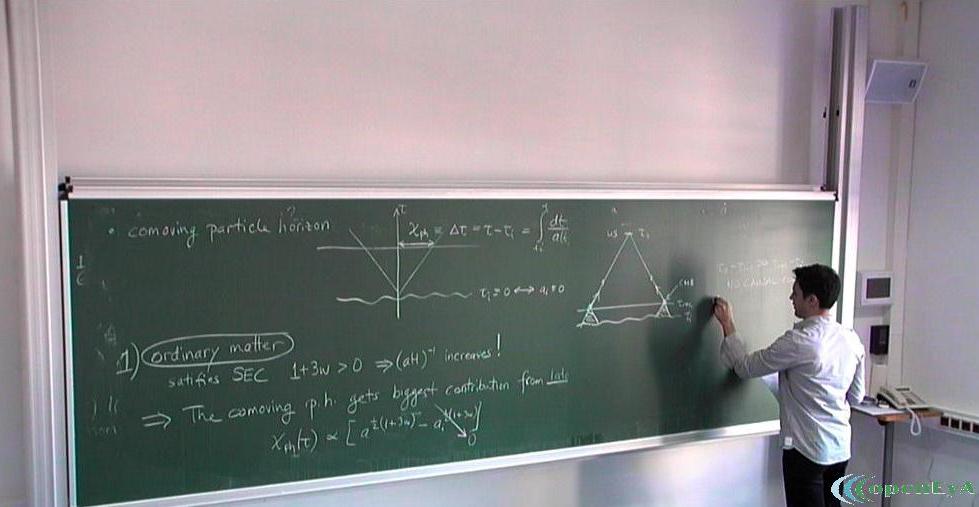 • comoving particle horizon
τ
χ_ph = Δτ = τ - τ_i = ∫ dt/a(t)
τ_i = 0 ↔ a_i = 0
us
τ_0
CMB
NO CAUSAL
1) ordinary matter
satifies SEC 1+3w > 0 ⇒ (aH)^-1 increases!
⇒ The comoving p.h. gets biggest contribution from late
χ_ph(τ) ∝ [a^½(1+3w) - a_i^½(1+3w)]
0
openEyA